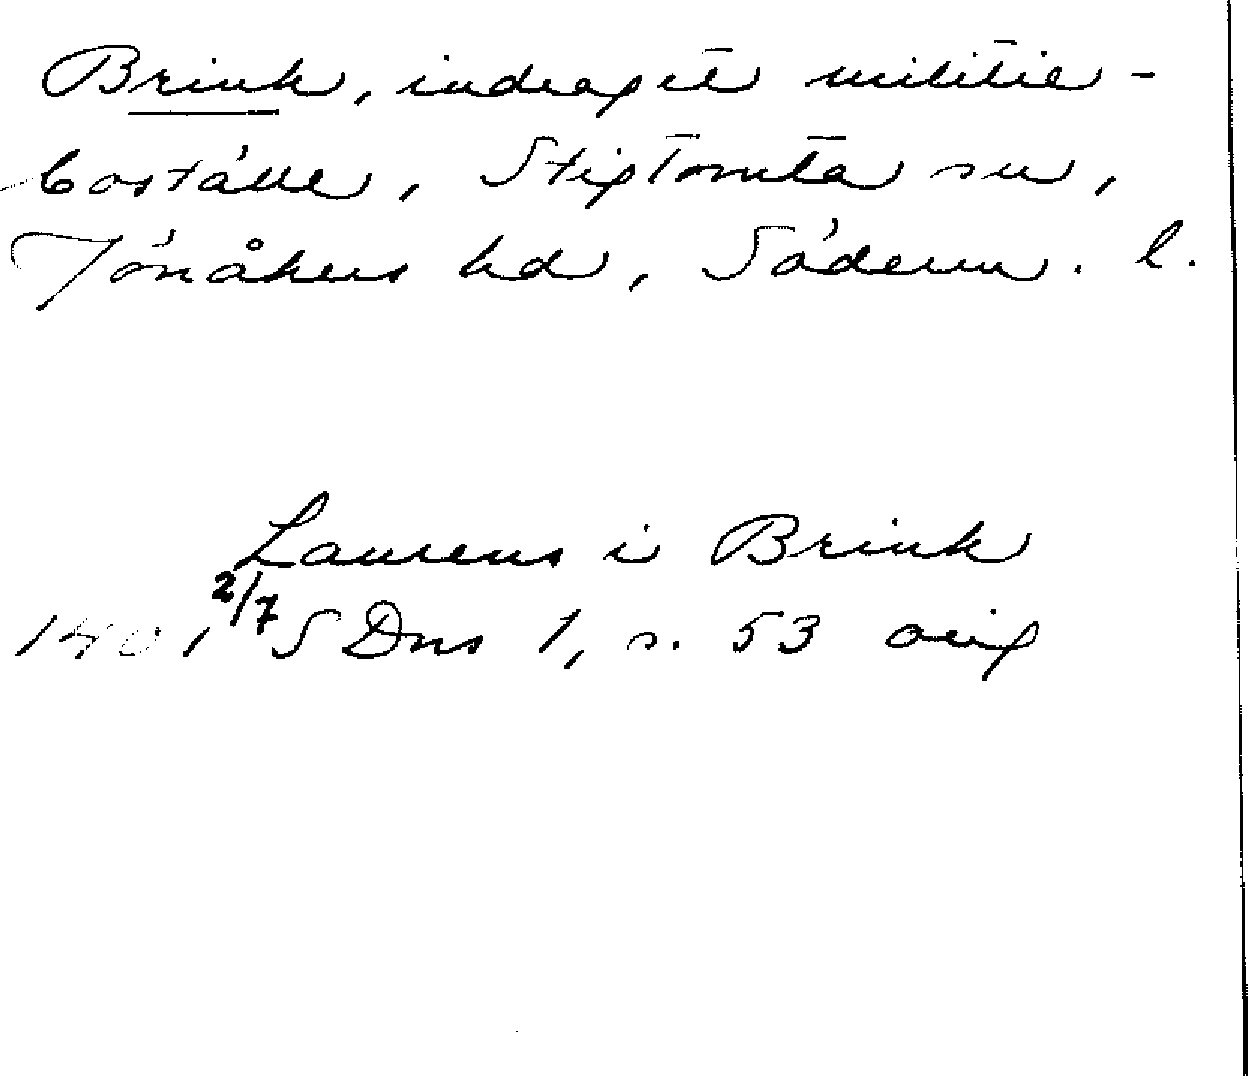 Brink, indraget militie-
boställe, Stigtomta sn,
Jönåkers hd, Söderm. l.
Laurens i Brink
1401 2/7 SDns 1, s. 53 orig